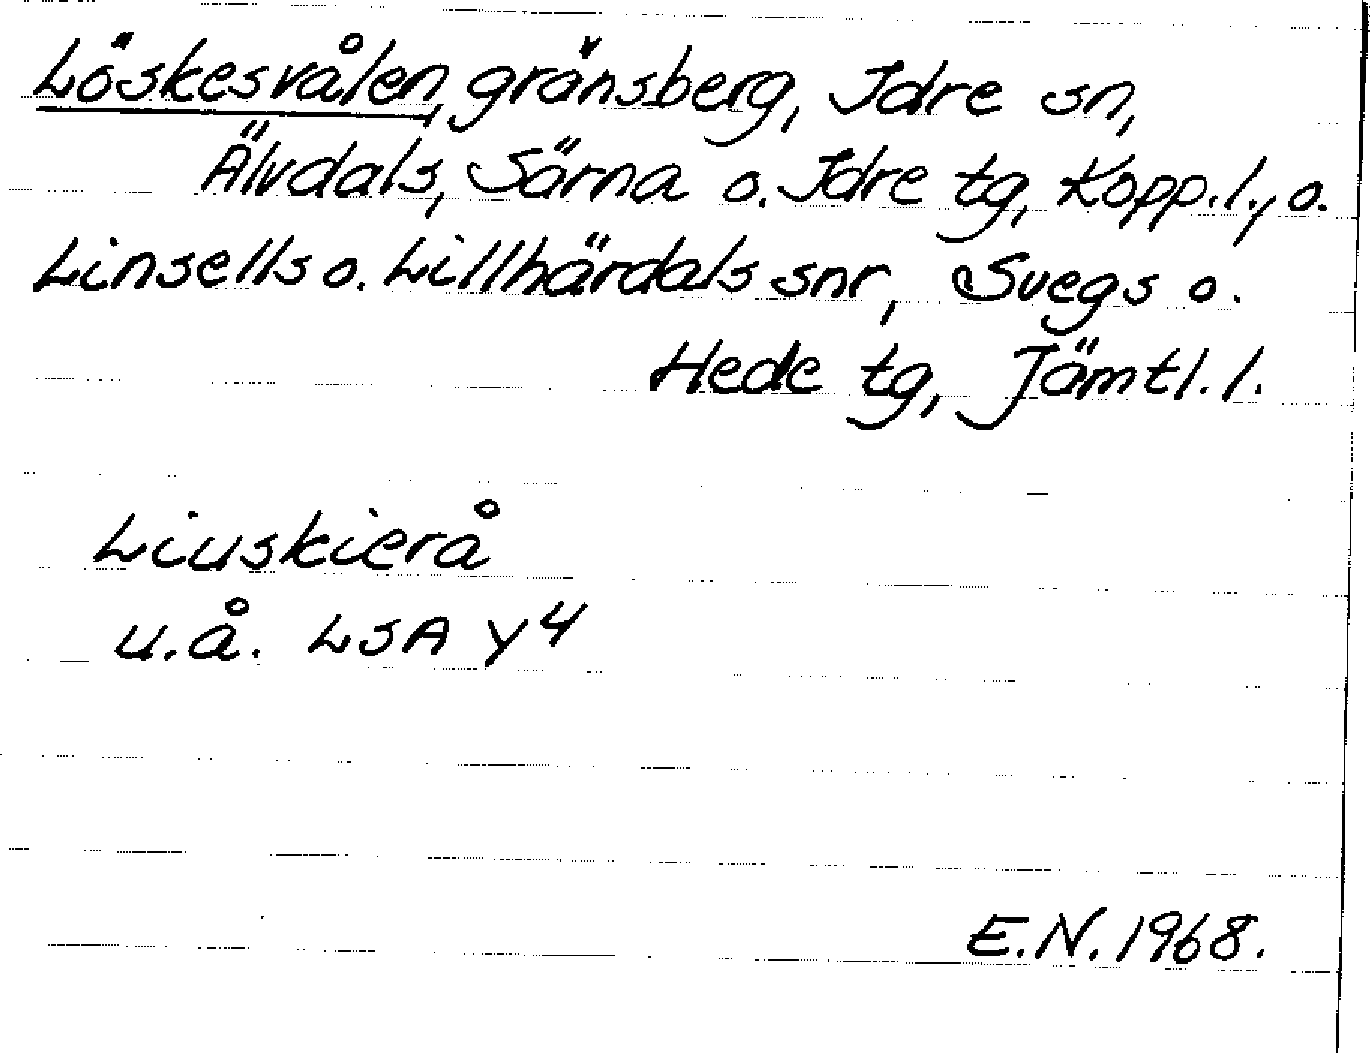 Löskesvålen, gränsberg, Idre sn,
Älvdals, Särna o. Idre tg, Kopp.l., o.
Linsells o. Lillhärdals snr, Svegs o.
Hede tg, Jämtl.l.
Liuskierå
u.å. LSA Y4
E.N. 1968.